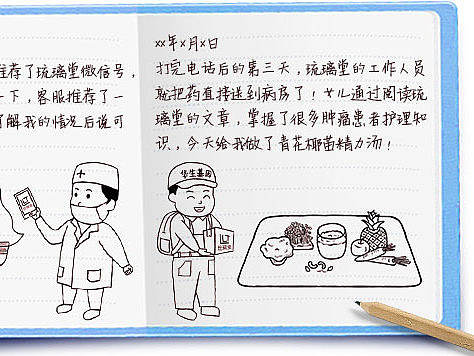 推荐了琉璃堂微信号,
一下，客服推荐了一
了解我的情况后说可
xx年x月x日
打完电话后的第三天，琉璃堂的工作人员
就把药直接送到病房了！女儿通过阅读琉
璃堂的文章，掌握了很多肿瘤患者护理知
识，今天给我做了青花椰菌精力汤！
华生基因